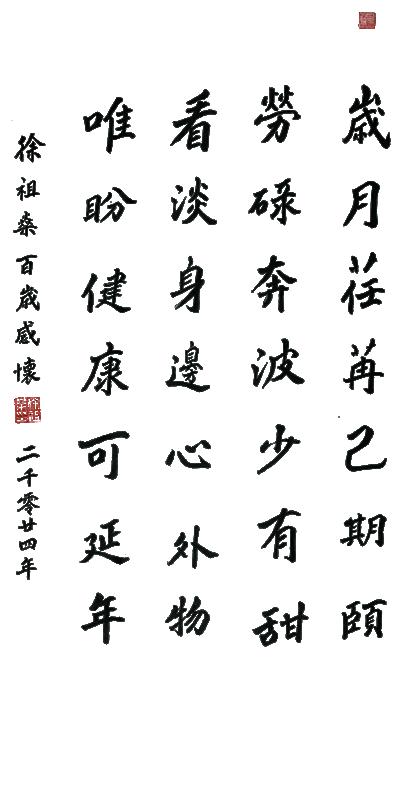 歲月荏苒已期頤
勞碌奔波少有甜
看淡身邊心外物
唯盼健康可延年
徐祖燊百歲感懷
二千零廿四年